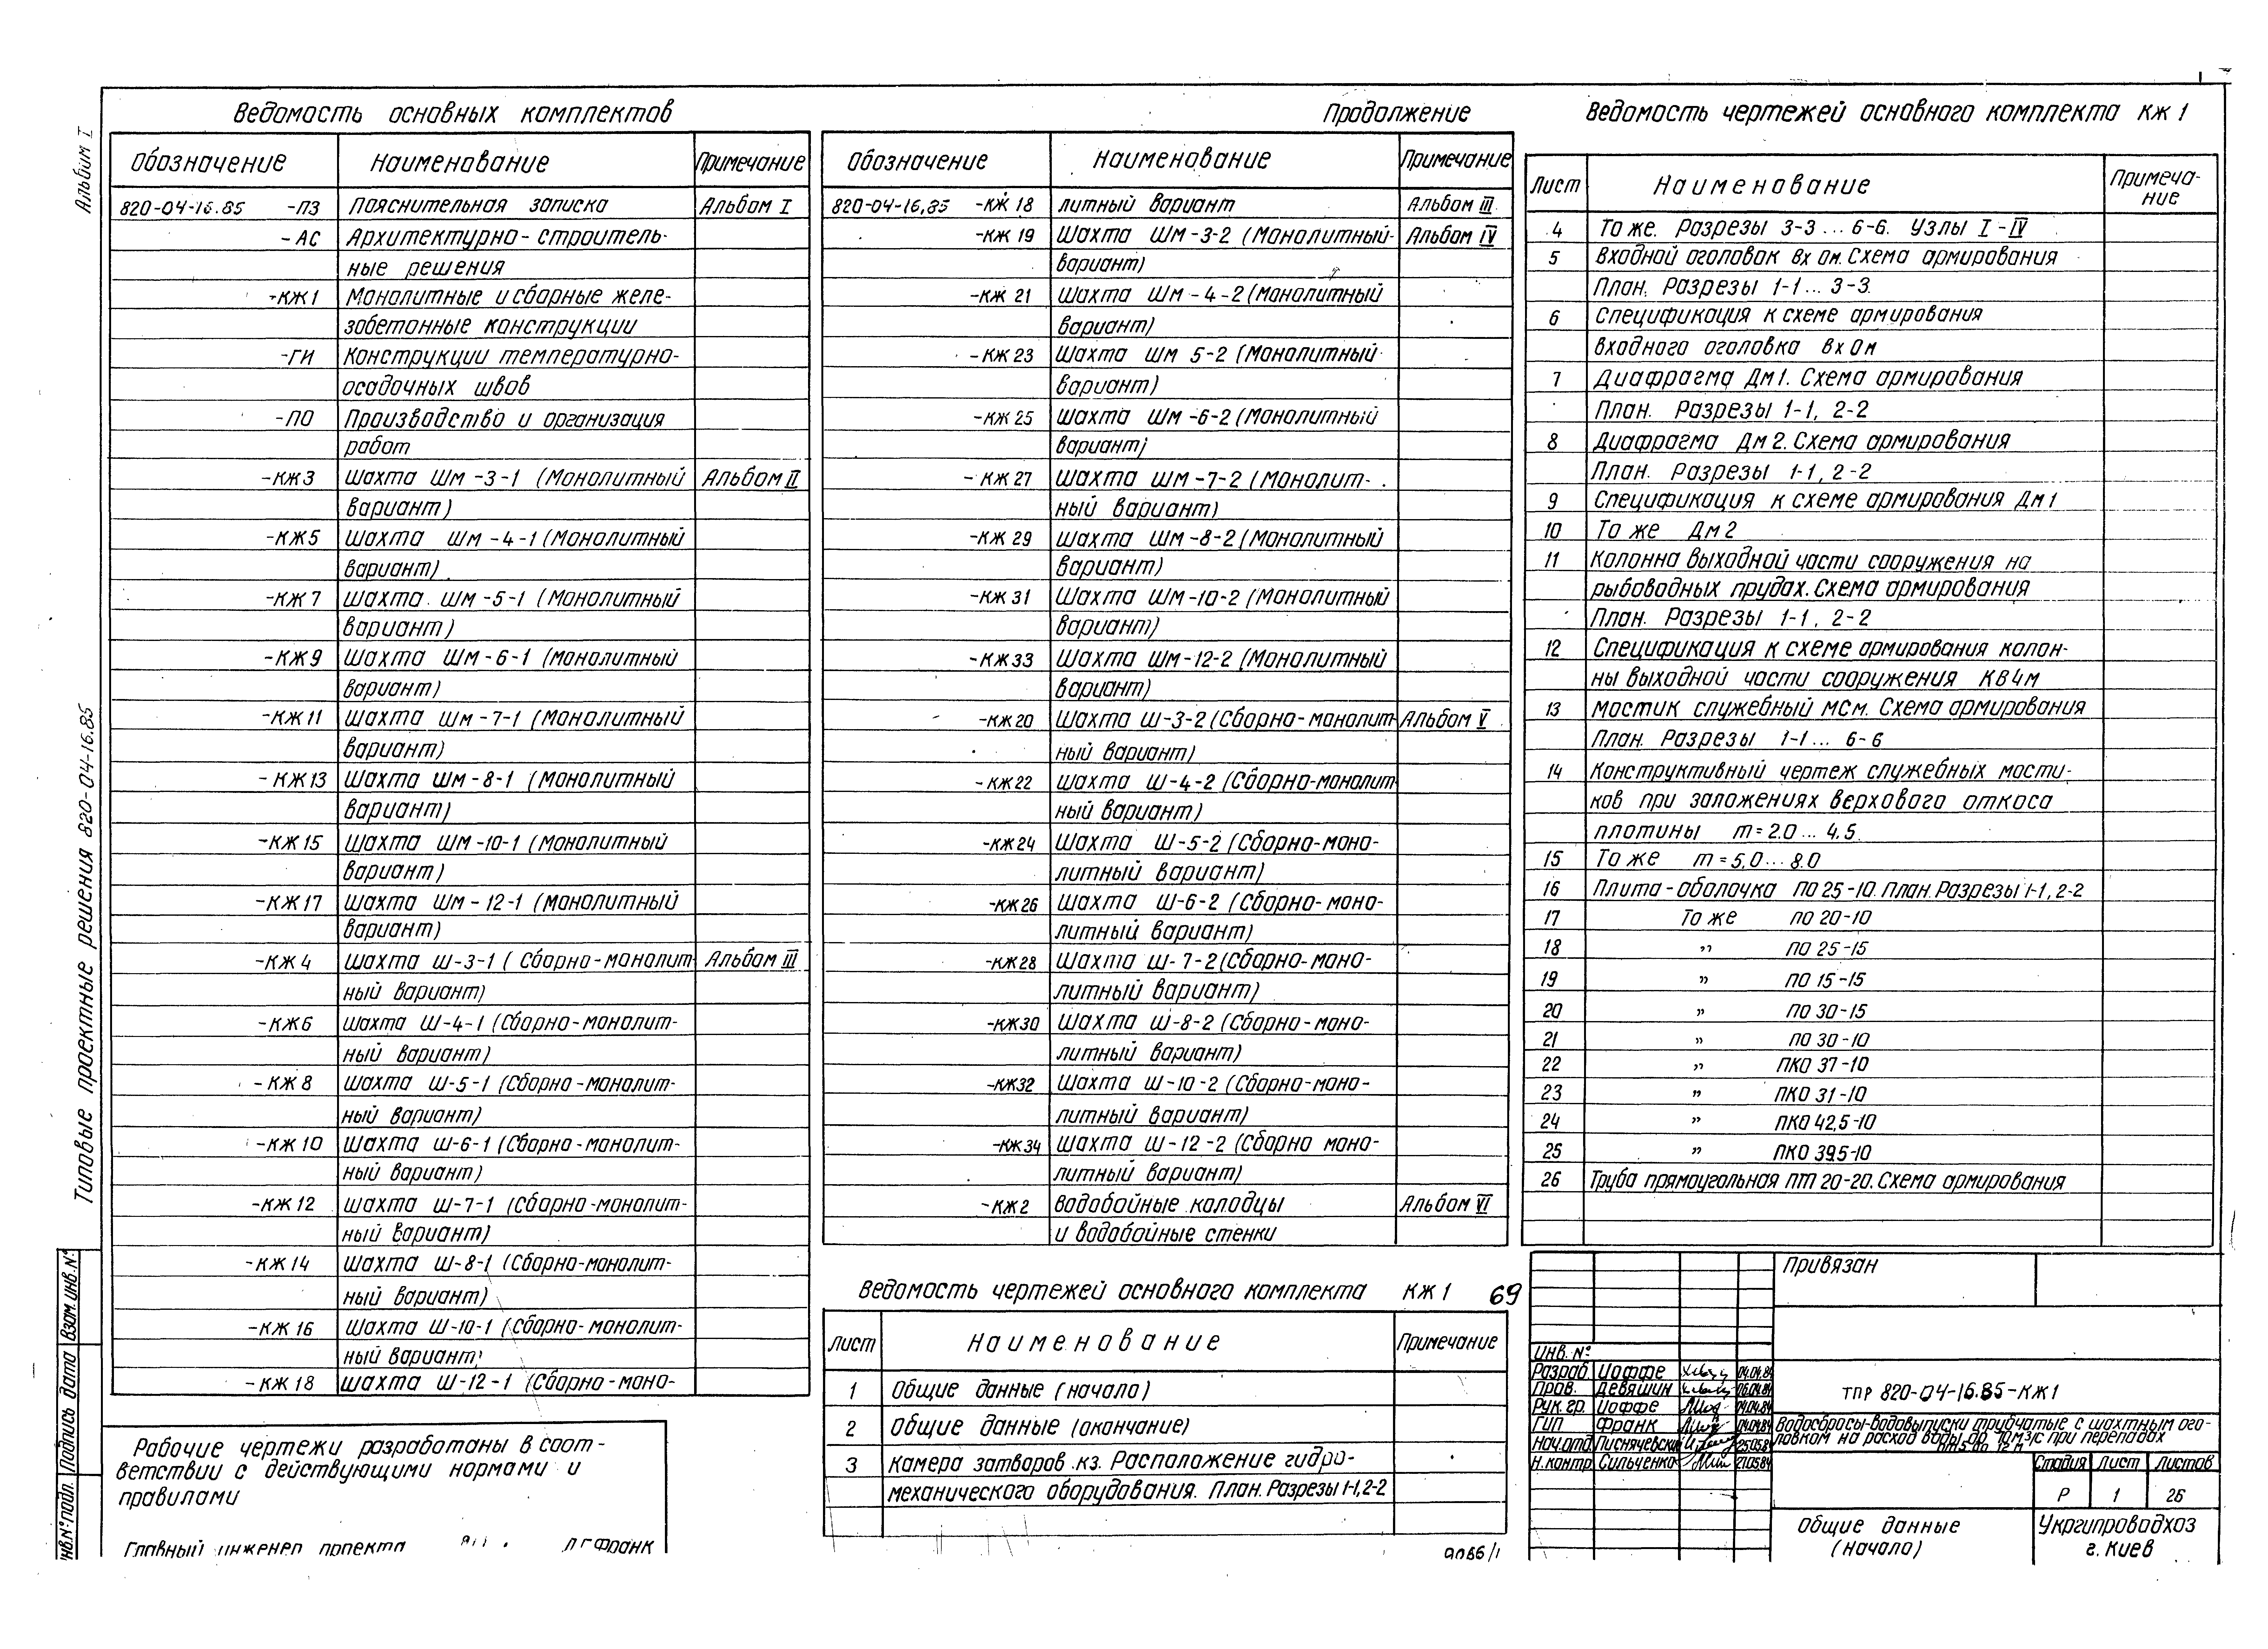 Альбом I
Типовые проектные решения 820-04-16.85
Ведомость основных комплектов
Обозначение Наименование Примечание
820-04-16.85 -ПЗ Пояснительная записка Альбом I
-АС Архитектурно-строитель-
ные решения
-КЖ1 Монолитные и сборные желе-
зобетонные конструкции
-ГИ Конструкции температурно-
осадочных швов
-ПО Производство и организация
работ
-КЖ3 Шахта Шм-3-1 (Монолитный Альбом II
вариант)
-КЖ5 Шахта Шм-4-1 (Монолитный
вариант)
-КЖ7 Шахта Шм-5-1 (Монолитный
вариант)
-КЖ9 Шахта Шм-6-1 (Монолитный
вариант)
-КЖ11 Шахта Шм-7-1 (Монолитный
вариант)
-КЖ13 Шахта Шм-8-1 (Монолитный
вариант)
-КЖ15 Шахта Шм-10-1 (Монолитный
вариант)
-КЖ17 Шахта Шм-12-1 (Монолитный
вариант)
-КЖ4 Шахта Ш-3-1 (Сборно-монолит- Альбом III
ный вариант)
-КЖ6 Шахта Ш-4-1 (Сборно-монолит-
ный вариант)
-КЖ8 Шахта Ш-5-1 (Сборно-монолит-
ный вариант)
-КЖ10 Шахта Ш-6-1 (Сборно-монолит-
ный вариант)
-КЖ12 Шахта Ш-7-1 (Сборно-монолит-
ный вариант)
-КЖ14 Шахта Ш-8-1 (Сборно-монолит-
ный вариант)
-КЖ16 Шахта Ш-10-1 (Сборно-монолит-
ный вариант)
-КЖ18 Шахта Ш-12-1 (Сборно-моно-
Рабочие чертежи разработаны в соот-
ветствии с действующими нормами и
правилами
Главный инженер проекта Л.Г.Франк
Продолжение
Обозначение Наименование Примечание
820-04-16.85 -КЖ18 литный вариант Альбом III
-КЖ19 Шахта Шм-3-2 (Монолитный Альбом IV
вариант)
-КЖ21 Шахта Шм-4-2 (Монолитный
вариант)
-КЖ23 Шахта Шм 5-2 (Монолитный
вариант)
-КЖ25 Шахта Шм-6-2 (Монолитный
вариант)
-КЖ27 Шахта Шм-7-2 (Монолит-
ный вариант)
-КЖ29 Шахта Шм-8-2 (Монолитный
вариант)
-КЖ31 Шахта Шм-10-2 (Монолитный
вариант)
-КЖ33 Шахта Шм-12-2 (Монолитный
вариант)
-КЖ20 Шахта Ш-3-2 (Сборно-монолит- Альбом V
ный вариант)
-КЖ22 Шахта Ш-4-2 (Сборно-монолит-
ный вариант)
-КЖ24 Шахта Ш-5-2 (Сборно-моно-
литный вариант)
-КЖ26 Шахта Ш-6-2 (Сборно-моно-
литный вариант)
-КЖ28 Шахта Ш-7-2 (Сборно-моно-
литный вариант)
-КЖ30 Шахта Ш-8-2 (Сборно-моно-
литный вариант)
-КЖ32 Шахта Ш-10-2 (Сборно-моно-
литный вариант)
-КЖ34 Шахта Ш-12-2 (Сборно моно-
литный вариант)
-КЖ2 Водобойные колодцы Альбом VI
и водобойные стенки
Ведомость чертежей основного комплекта КЖ1 69
Лист Наименование Примечание
1 Общие данные (начало)
2 Общие данные (окончание)
3 Камера затворов кз. Расположение гидро-
механического оборудования. План. Разрезы 1-1, 2-2
Ведомость чертежей основного комплекта КЖ1
Лист Наименование Примеча-
ние
4 То же. Разрезы 3-3...6-6. Узлы I-IV
5 Входной оголовок вх ом. Схема армирования
План. Разрезы 1-1...3-3.
6 Спецификация к схеме армирования
входного оголовка вхОм
7 Диафрагма Дм1. Схема армирования
План. Разрезы 1-1, 2-2
8 Диафрагма Дм2. Схема армирования
План. Разрезы 1-1, 2-2
9 Спецификация к схеме армирования Дм1
10 То же Дм2
11 Колонна выходной части сооружения на
рыбоводных прудах. Схема армирования
План. Разрезы 1-1, 2-2
12 Спецификация к схеме армирования колон-
ны выходной части сооружения КВ4м
13 Мостик служебный МСм. Схема армирования
План. Разрезы 1-1...6-6
14 Конструктивный чертеж служебных мости-
ков при заложениях верхового откоса
плотины m=2.0...4,5.
15 То же m=5,0...8.0
16 Плита-оболочка ПО 25-10. План. Разрезы 1-1, 2-2
17 То же ПО 20-10
18 " ПО 25-15
19 " ПО 15-15
20 " ПО 30-15
21 " ПО 30-10
22 " ПКО 37-10
23 " ПКО 31-10
24 " ПКО 42,5-10
25 " ПКО 39.5-10
26 Труба прямоугольная ПТ 20-20. Схема армирования
Привязан
Инв. №
Разраб. Иоффе 04.04.84
Пров. Девяшин 06.04.84
Рук. гр. Иоффе 04.04.84
ГИП Франк 04.04.84
Нач.отд. Писнячевский 25.05.84
Н.контр. Сильченко 27.05.84
ТПР 820-04-16.85-КЖ1
Водосбросы-водовыпуски трубчатые с шахтным ого-
ловком на расход воды до 10м3/с при перепадах
от 5 до 12 м
Стадия Лист Листов
Р 1 26
Общие данные
(начало)
Укргипроводхоз
г. Киев
Инв.№подл. Подпись дата Взам.инв.№